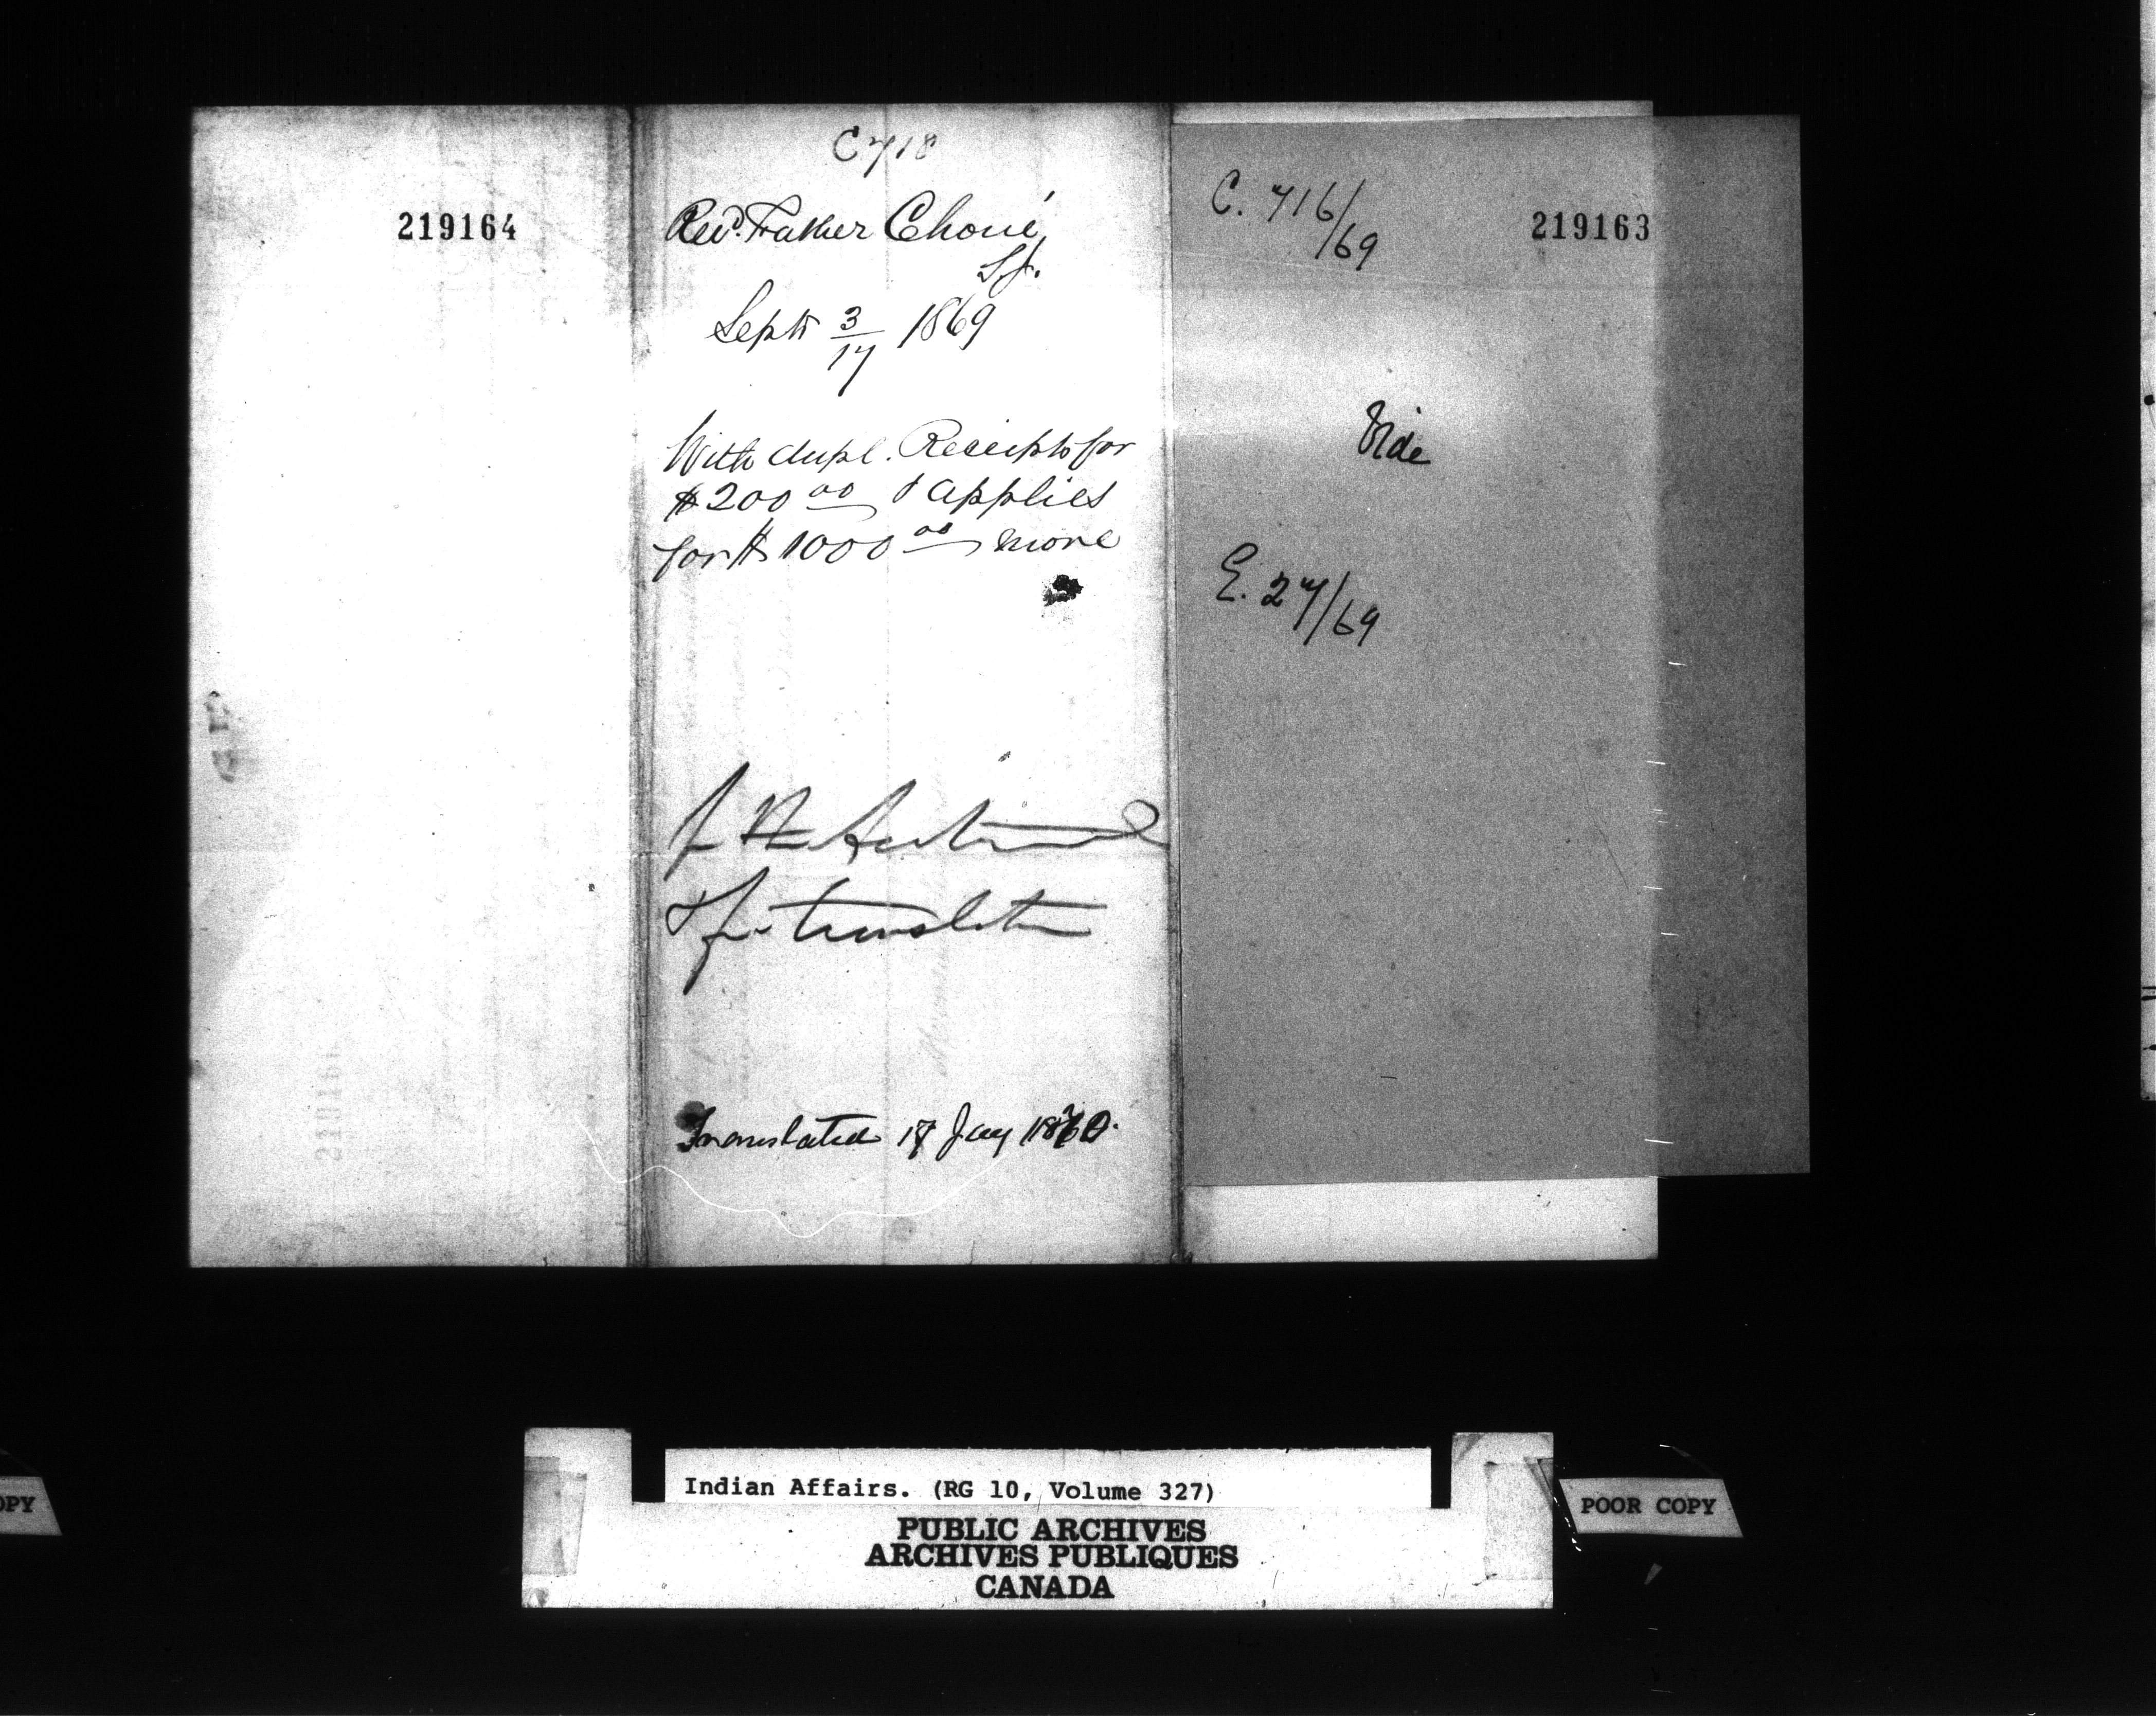 219164
C 718
Revd. Father Choné,
S.J.
Septr 3/17 1869
With dupl. Receipts for
$200 00 & applies
for $1000 00 more
J
& for translation
Translated 17 Jany 1870.
C. 716/69
219163
Vide
E. 27/69
Indian Affairs. (RG 10, Volume 327)
PUBLIC ARCHIVES
ARCHIVES PUBLIQUES
CANADA
POOR COPY
OPY